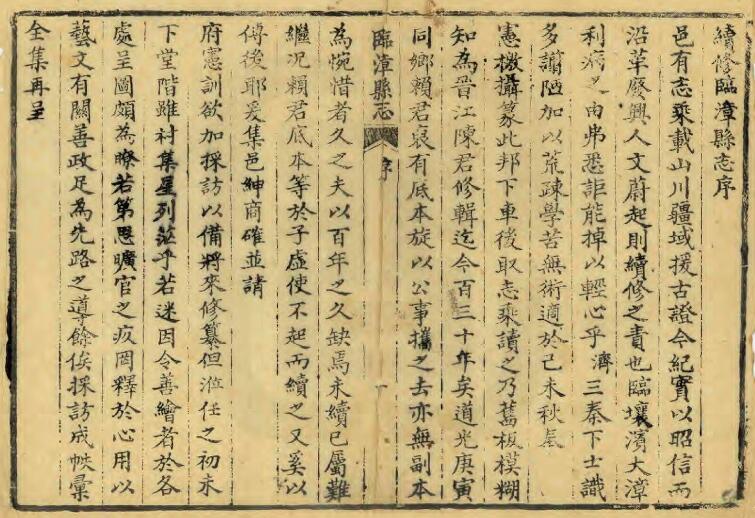 續修臨漳縣志序
邑有志乘載山川疆域援古證今紀實以昭信而
沿革廢興人文蔚起則續修之責也臨壤濱大漳
利病之由弗悉詎能掉以輕心乎濟三秦下士識
多譾陋加以荒疎學苦無術適於己未秋虽
憲檄攝篆此邦下車後取志乘讀之乃舊板模糊
知為晉江陳君修輯迄今百三十年矣道光庚寅
同鄉賴君裒有底本旋以公事攜之去亦無副本
臨漳縣志
序
一
為惋惜者久之夫以百年之久缺焉未續已屬難
繼况賴君底本等於子虛使不起而續之又奚以
傳後耶爰集邑紳商確並請
府憲訓欲加採訪以備將來修纂但涖任之初未
下堂階雖村集星列茫乎若迷因令善繪者於各
處呈圖頗為瞭若第思曠官之疚罔釋於心用以
藝文有關善政足為先路之導餘俟採訪成帙彙
全集再呈